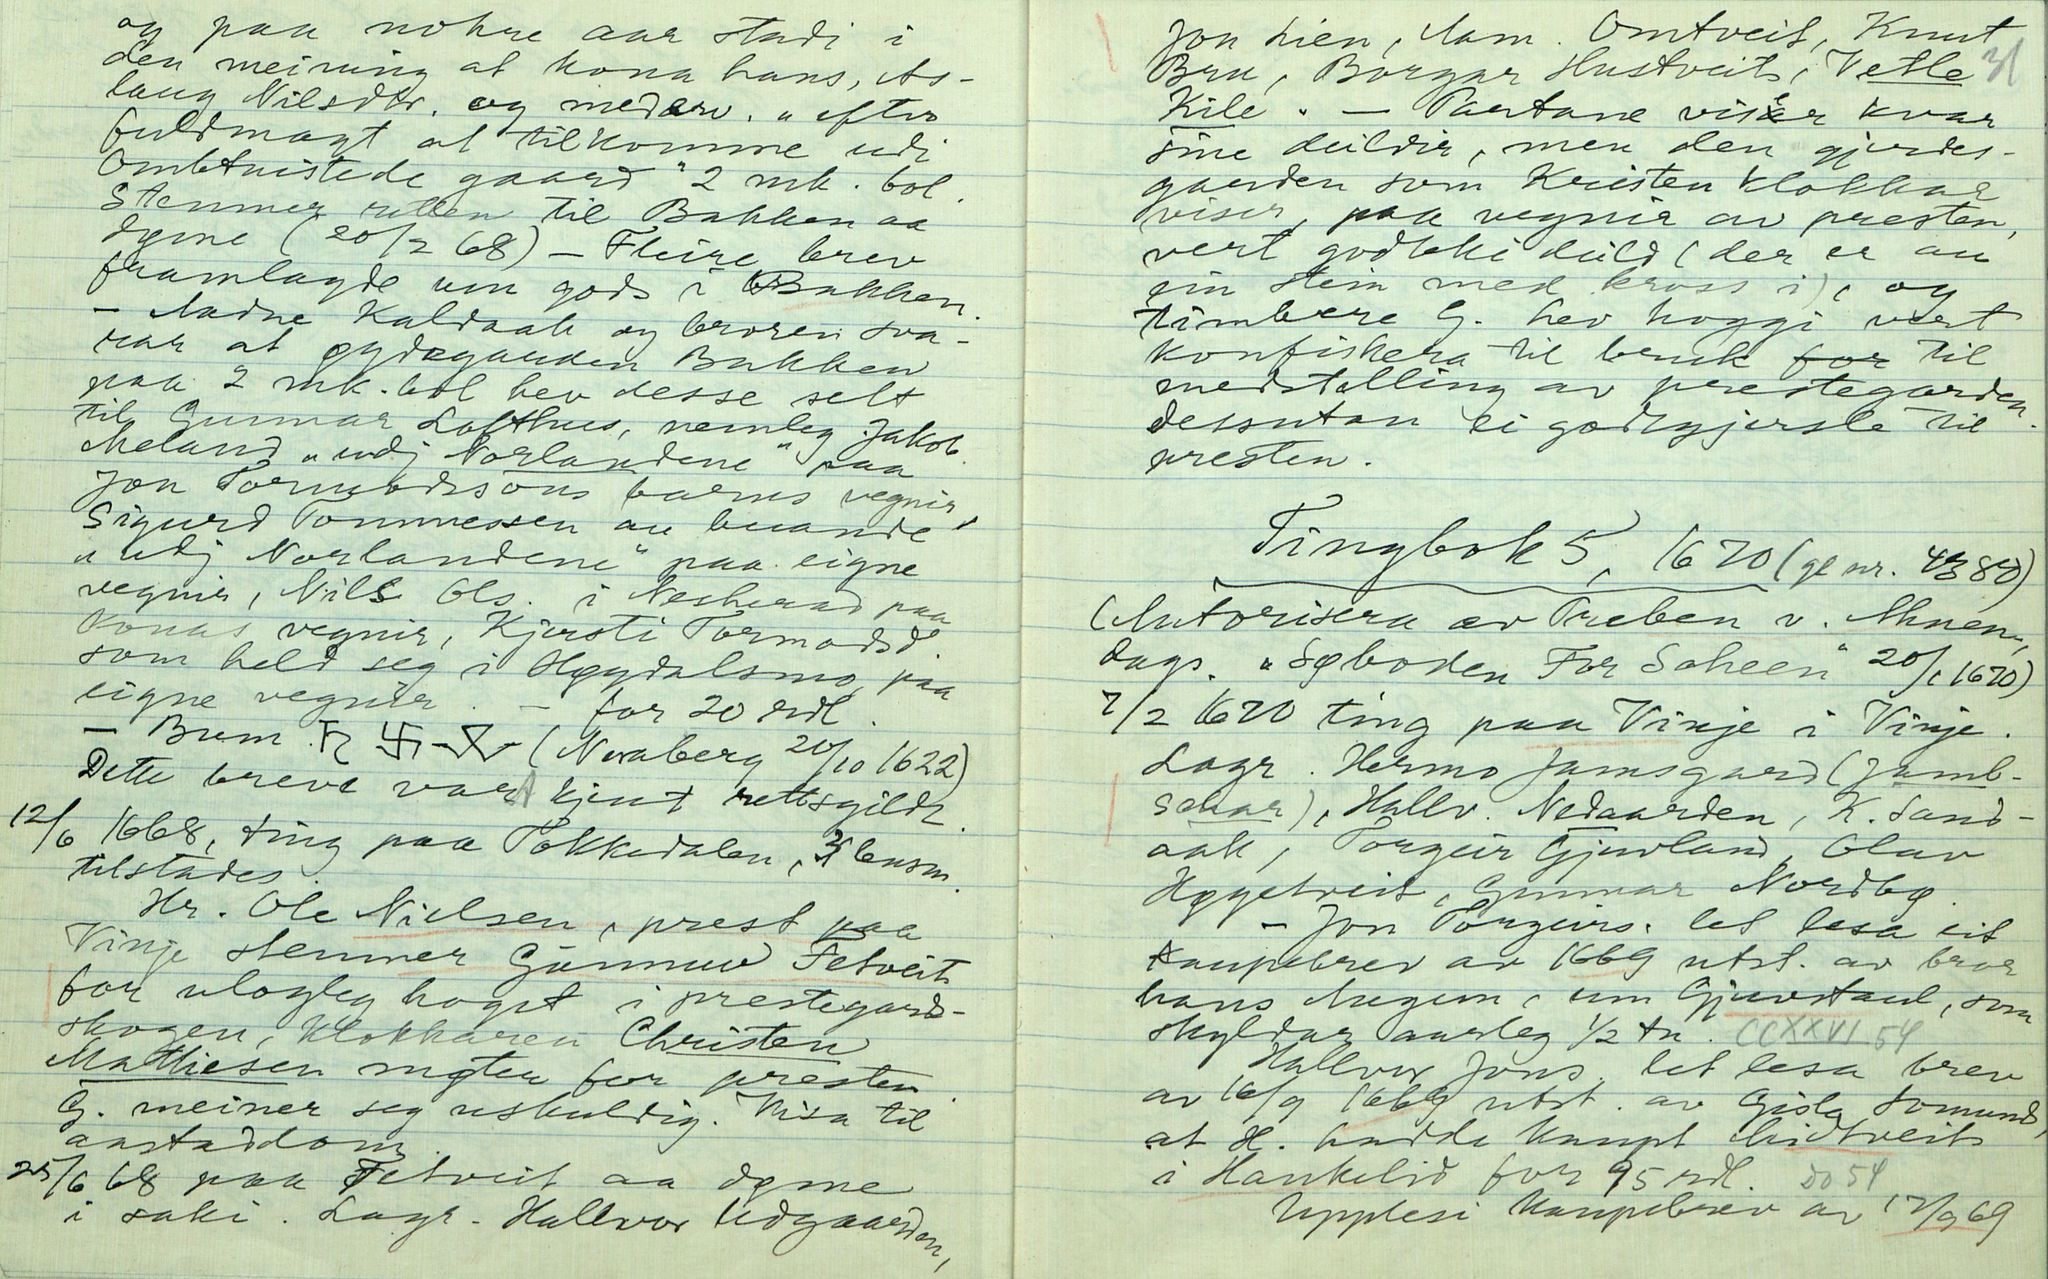 og paa nokre aar stadi i
den meining at kona hans, As-
laug Nilsdtr. og medarv. "efter
fuldmagt at tilkomme udi
Ombtuistede gaard" 2 mk. bol.
Stemner retten til Bakken aa
døme (20/2 68) – Fleire brev
framlagde um gods i Bakken.
– Aadne Kaldaak og broren sva-
rar at øydegarden Bakken
paa 2 mk. bol hev desse selt
til Gunnar Lofthus, nemleg Jakob
Meland "udj Norlandene" paa
Jon Tormodssøns barns vegnir,
Sigurd Tommessen au buande
"udj Norlandene" paa eigne
vegnir, Nils Ols. i Nesherad paa
konas vegnir, Kjersti Tormodsd.
som held seg i Høydalsmo, paa
eigne vegnir. – for 20 rdl.
– Bum. (Noraberg 20/10 1622)
Dette brevet vart kjent rettsgildt.
12/6 1668, ting paa Tokkedalen, lensm.
tilstades.
Hr. Ole Nielsen, prest paa
Vinje stemner Gunnuv Fetveit
for ulogleg hogst i prestegards-
skogen, klokkaren Christen
Mathiesen møter for presten.
G. meiner seg uskuldig. Visa til
aastaddom.
25/6 68 paa Fetveit aa døme
i saki. Lagr. Hallvor Udgaarden,
Jon Lien, Aam. Omtveit, Knut 31
Bru, Borgar Hustveit, Vetle
Kile. – Partane viser kvar
sine deildir, men den gjerdes-
garden som Kristen klokkar
viser, paa vegnir av presten,
vert godteki deild (der er au
ein stein med kross i), og
timbere G. hev hoggi vert
konfiskera til bruk for til
medstelling av prestegarden.
dessutan ei godtgjersle til
presten.
Tingbok 5, 1670 (gl nr. 4380)
(Autorisera av Preben v. Ahnen,
dags. "Søboden For Scheen" 20/1 1670)
7/2 1670 ting paa Vinje i Vinje.
Lagr. Hermo Jamsgard (Jamb-
schar), Hallv. Nedaarden, K. Sand-
aak, Torgeir Gjuvland, Olav
Høgetveit, Gunnar Nordbø.
– Jon Torgeirs. let lesa eit
kaupebrev av 1669 utst. av bror
hans Augun, um Gjuvstaul, som
skyldar aarleg 1/2 tn. CCXXVI 54
Hallvor Jons. let lesa brev
av 16/9 1669 utst. av Gisle Somunds.
at H. hadde kaupt Midtveit
i Haukelid for 95 rdl. Do 54
Upplesi kaupebrev av 17/9 69